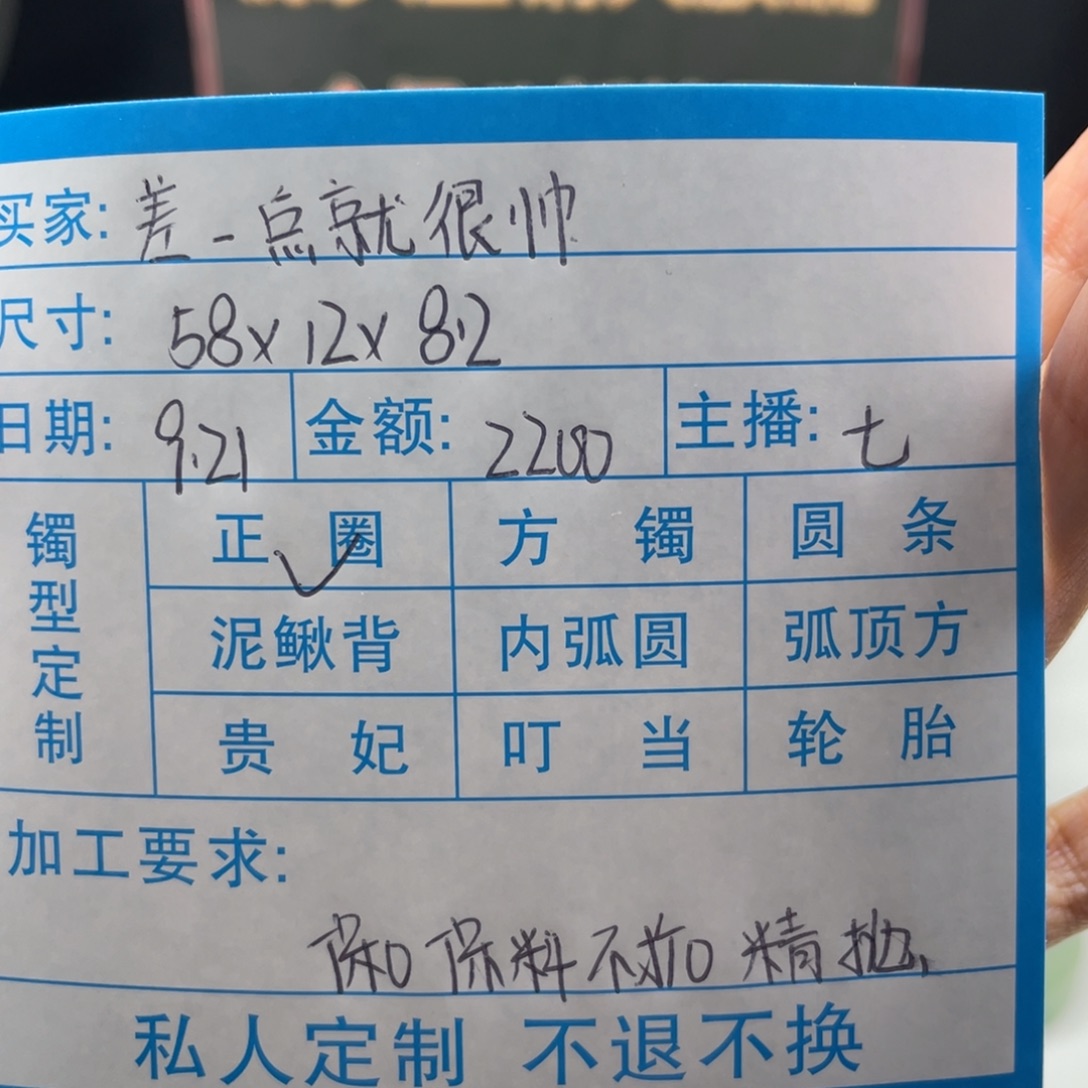 买家: 差一点就很帅
尺寸: 58x12x8.2
日期: 9.21 金额: 2200 主播: 七
镯型定制
正圈 方镯 圆条
泥鳅背 内弧圆 弧顶方
贵妃 叮当 轮胎
加工要求:
保料不扣精抛
私人定制 不退不换